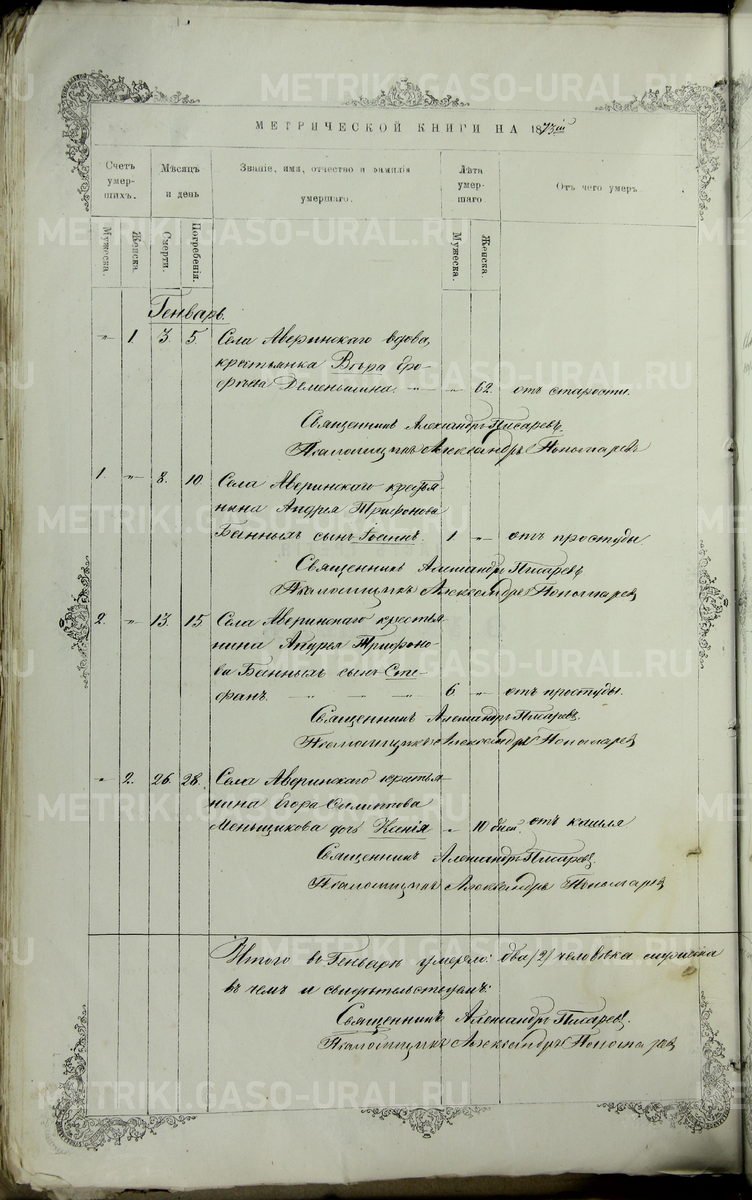 МЕТРИЧЕСКОЙ КНИГИ НА 1873й
Счетъ умер-шихъ. Мѣсяцъ и день Званіе, имя, отчество и фамилія умершаго. Лѣта умер-шаго Отъ чего умеръ
Мужеска. Женска. Смерти. Погребенія. Мужеска. Женска.
Генварь.
" 1 3. 5 Села Аверинскаго вдова,
крестьянка Вѣра Еро-
фѣева Деменьшина. " 62. отъ старости.
Священникъ Александръ Писаревъ.
Псаломщикъ Александръ Пономаревъ
1. " 8. 10 Села Аверинскаго крестья-
нина Андрея Трифонова
Банныхъ сынъ Іоаннъ. 1 " отъ простуды
Священникъ Александръ Писаревъ
Псаломщикъ Александръ Пономаревъ
2. " 13. 15 Села Аверинскаго крестья-
нина Андрея Трифоно-
ва Банныхъ сынъ Сте-
фанъ. 6 " отъ простуды.
Священникъ Александръ Писаревъ.
Псаломщикъ Александръ Пономаревъ
" 2. 26. 28. Села Аверинскаго крестья-
нина Егора
Меньщикова дочь Ксанія " 10 отъ кашля
Священникъ Александръ Писаревъ
Псаломщикъ Александръ Пономаревъ
Итого въ Генварѣ умерло: два /2/ человѣка
въ чемъ и свидѣтельствуемъ:
Священникъ Александръ Писаревъ.
Псаломщикъ Александръ Пономаревъ
METRIKI.GASO-URAL.RU